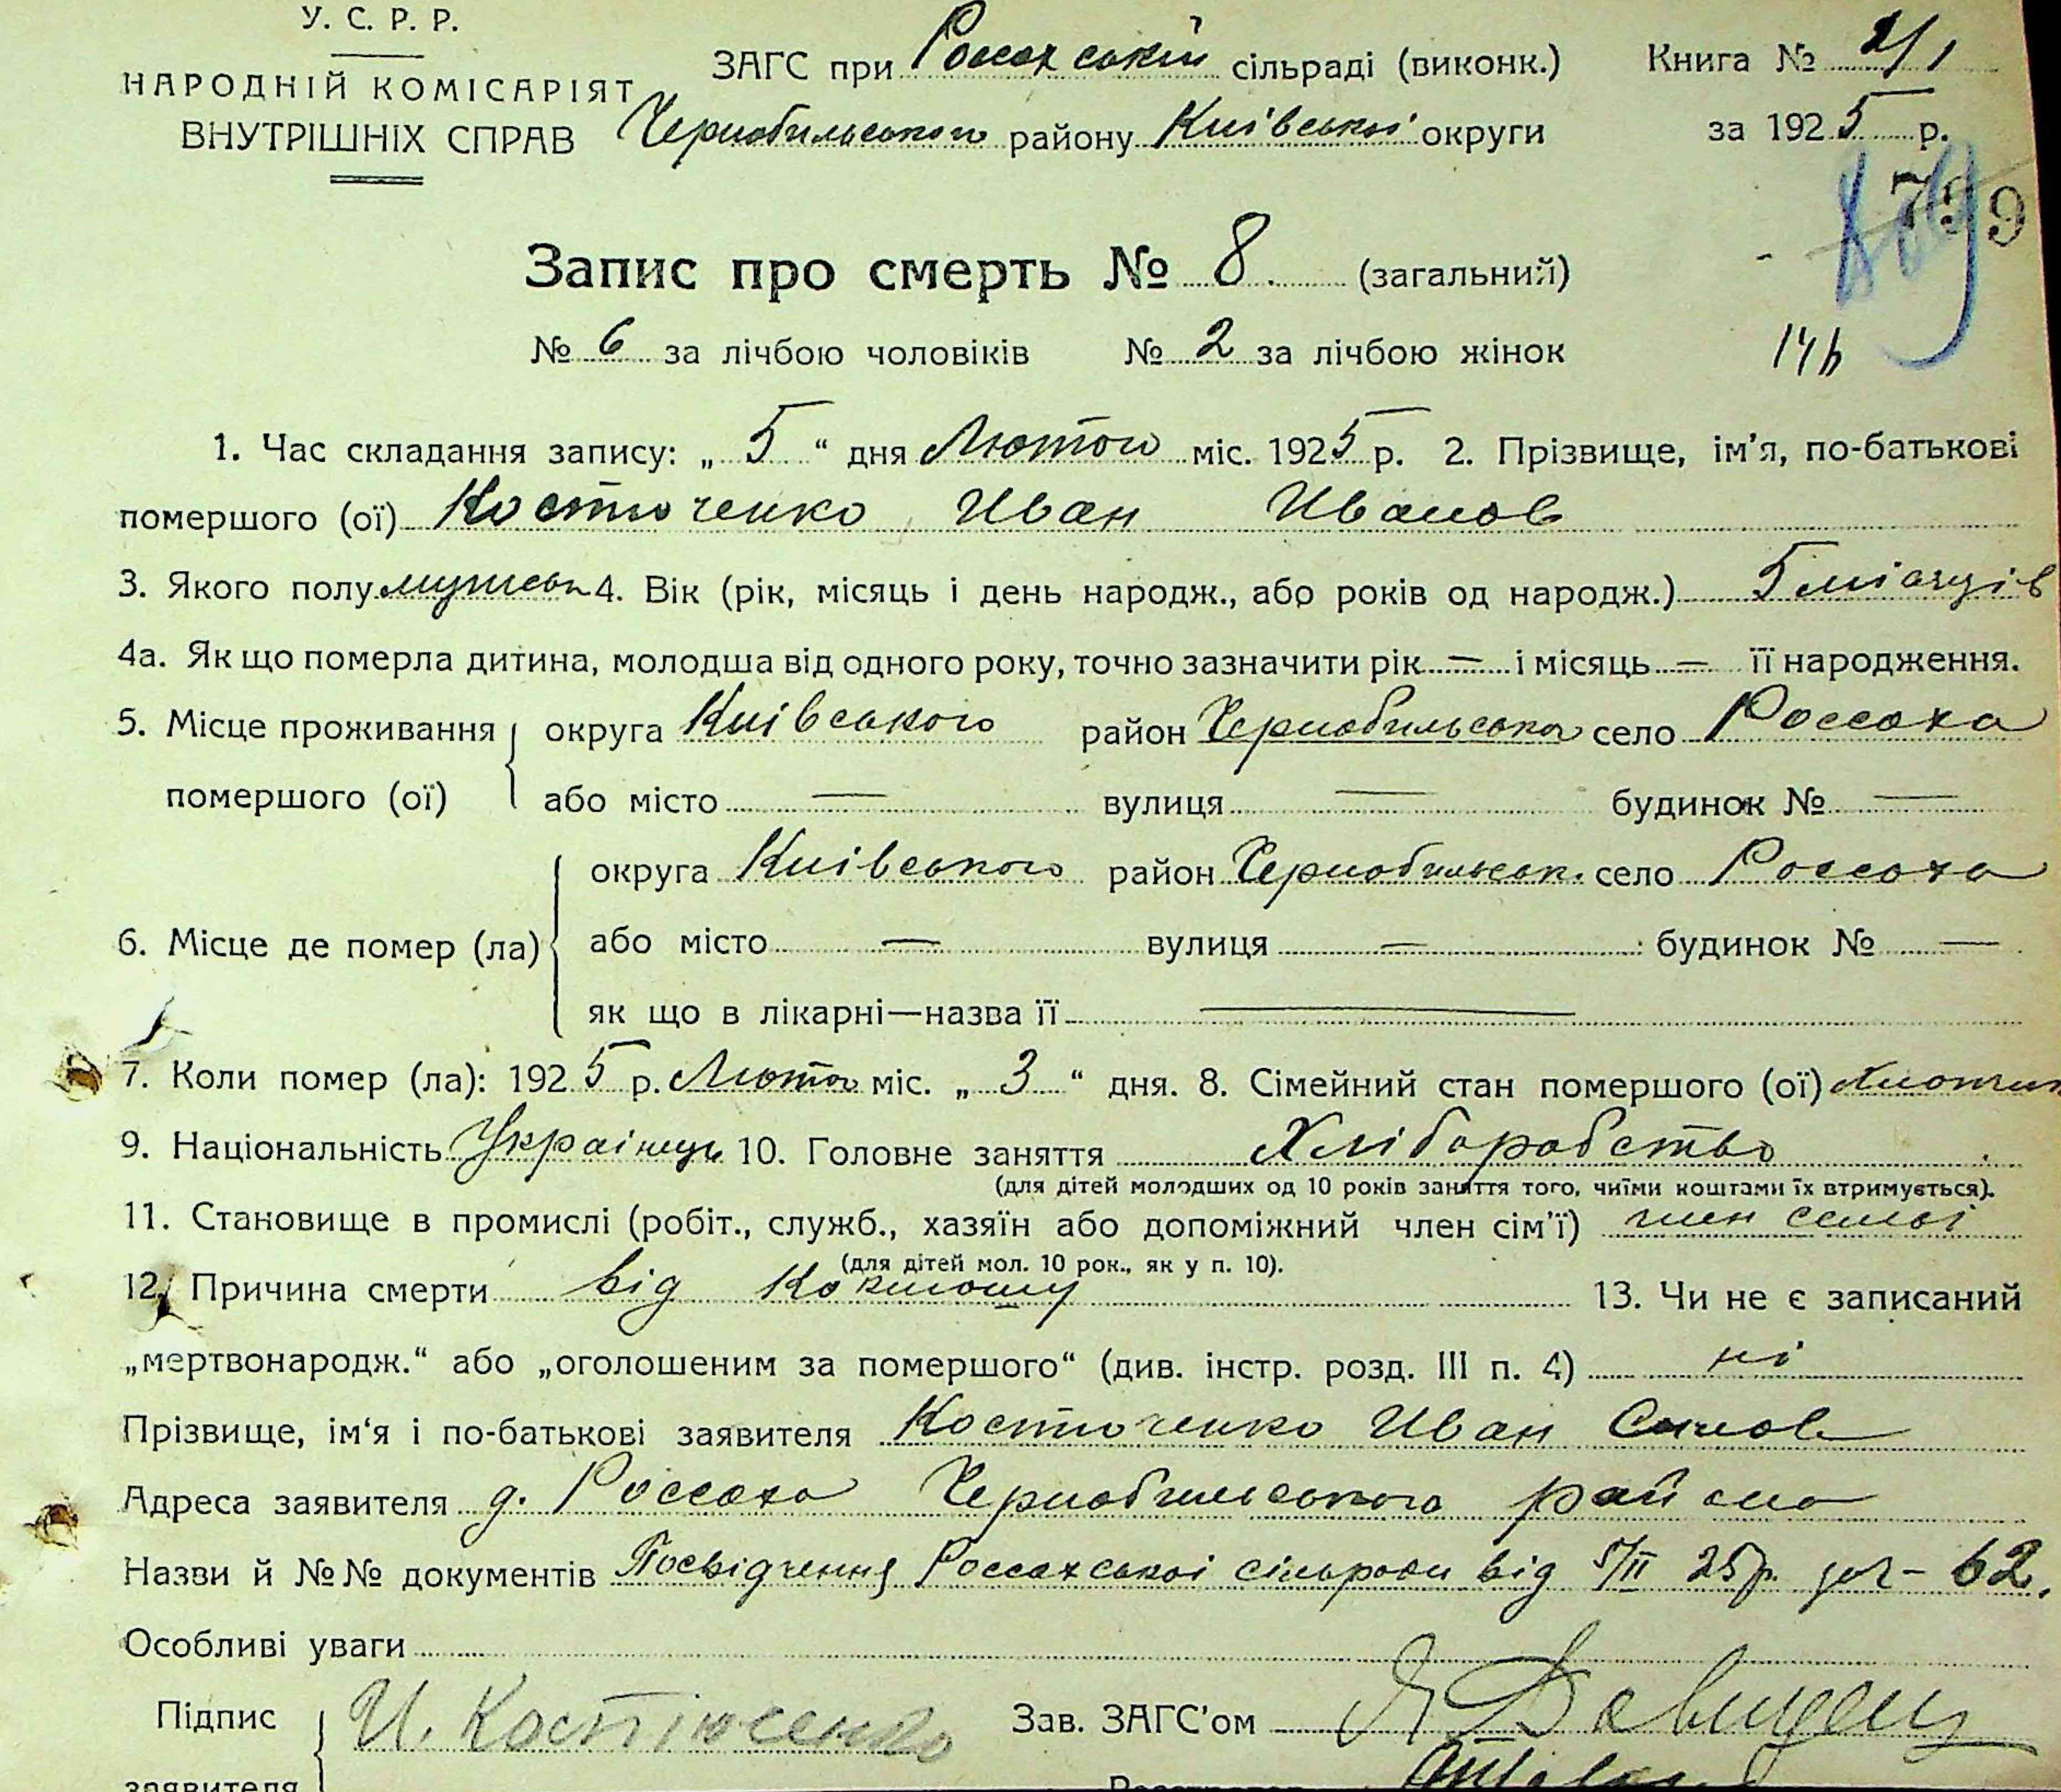 У. С. Р. Р.
НАРОДНІЙ КОМІСАРІЯТ
ВНУТРІШНІХ СПРАВ
ЗАГС при Россохській сільраді (виконк.)
Чернобильського району Київської округи
Книга № 2/1
за 1925 р.
Запис про смерть № 8 (загальний)
№ 6 за лічбою чоловіків № 2 за лічбою жінок
1. Час складання запису: „ 5 “ дня Лютого міс. 1925 р. 2. Прізвище, ім’я, по-батькові
помершого (ої) Костюченко Иван Иванов
3. Якого полу мужськ 4. Вік (рік, місяць і день народж., або років од народж.) 5 місяців
4а. Як що померла дитина, молодша від одного року, точно зазначити рік — і місяць — її народження.
5. Місце проживання округа Київського район Чернобильського село Россоха
помершого (ої) або місто — вулиця — будинок № —
округа Київського район Чернобильськ. село Россоха
6. Місце де помер (ла) або місто — вулиця — будинок № —
як що в лікарні—назва її —
7. Коли помер (ла): 1925 р. Лютого міс. „ 3 “ дня. 8. Сімейний стан помершого (ої)
9. Національність Українець 10. Головне заняття Хліборобство
(для дітей молодших од 10 років заняття того, чиїми коштами їх втримується).
11. Становище в промислі (робіт., служб., хазяїн або допоміжний член сім’ї) член семьї
(для дітей мол. 10 рок., як у п. 10).
12. Причина смерти від Коклюшу 13. Чи не є записаний
„мертвонародж.“ або „оголошеним за помершого“ (див. інстр. розд. III п. 4) ні
Прізвище, ім‘я і по-батькові заявителя Костюченко Иван
Адреса заявителя д. Россоха Чернобильського района
Назви й №№ документів Посвідчення Россохської сільради від 5/II 25р. 62.
Особливі уваги
Підпис И. Костюченко Зав. ЗАГС’ом
заявителя